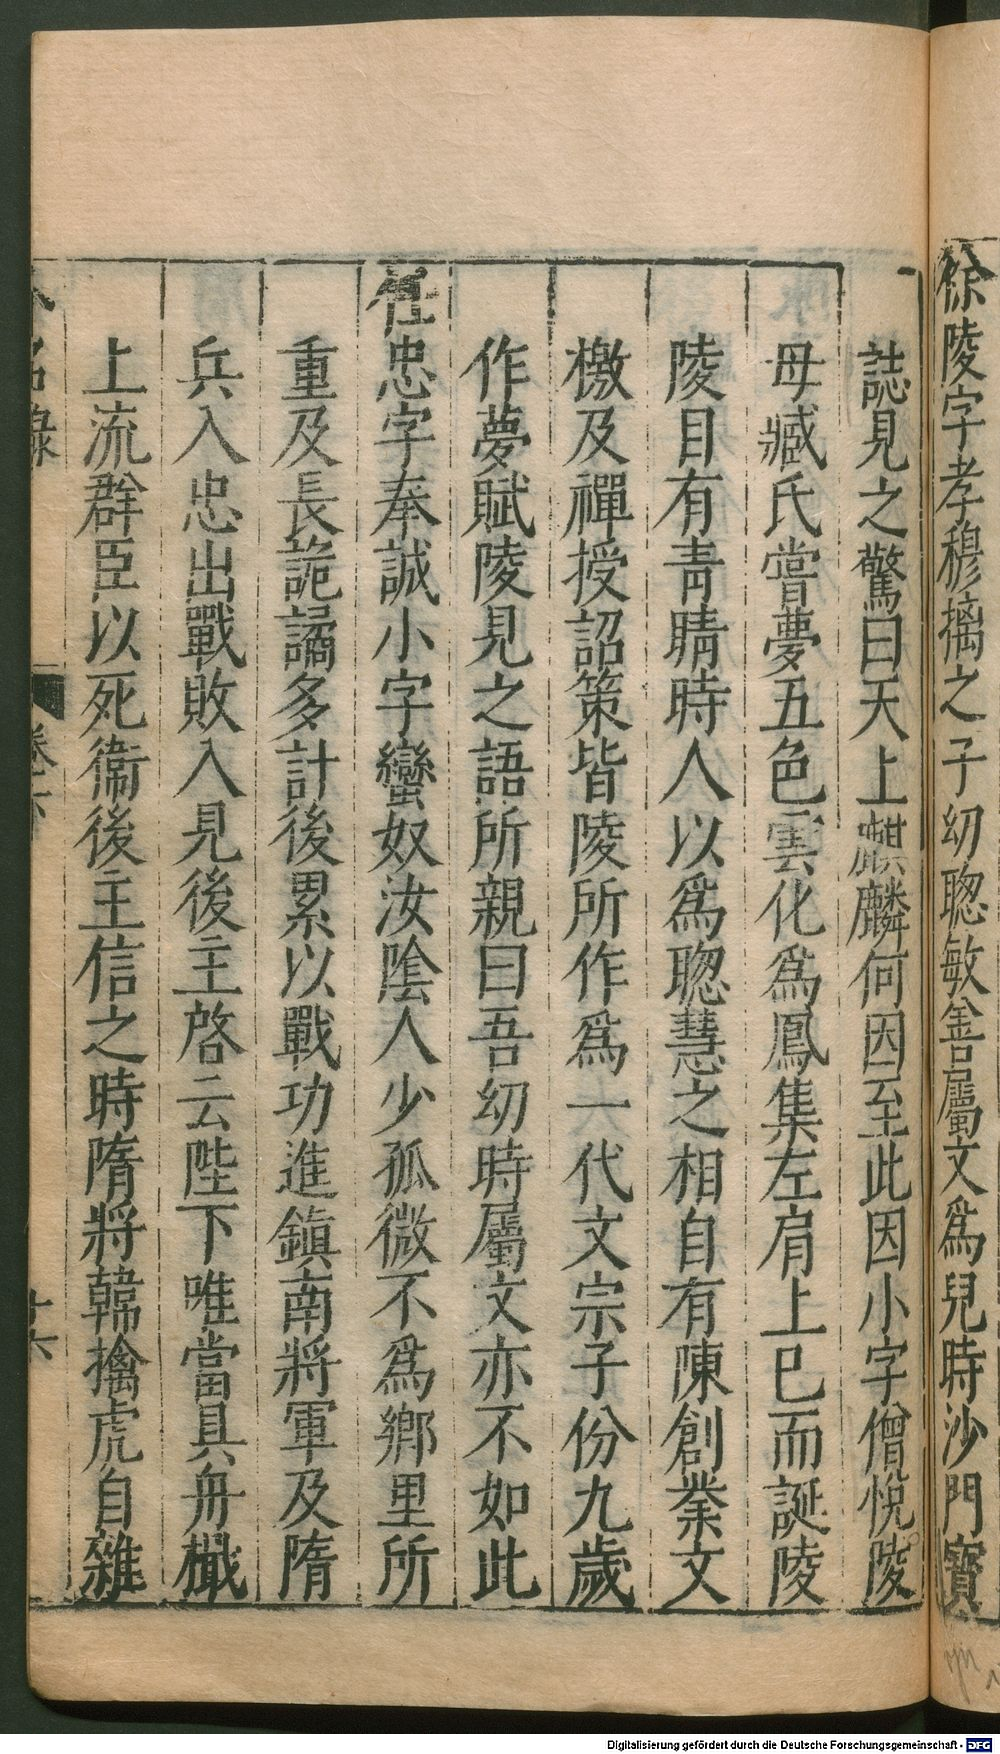 徐陵字孝穆摛之子幼聦敏善屬文爲兒時沙門寳
誌見之驚曰天上麒麟何因至此因小字僧悅陵
母臧氏嘗夢五色雲化爲鳳集左肩上巳而誕陵
陵目有青睛時人以爲聦慧之相自有陳創業文
檄及禪授詔策皆陵所作爲一代文宗子份九歲
作夢賦陵見之語所親曰吾幼時屬文亦不如此
任忠字奉誠小字蠻奴汝隂人少孤微不爲鄉里所
重及長詭譎多計後累以戰功進鎮南將軍及隋
兵入忠出戰敗入見後主啓云陛下唯當具舟檝
上流群臣以死衞後主信之時隋將韓擒虎自雜
名錄 卷六 十六
Digitalisierung gefördert durch die Deutsche Forschungsgemeinschaft - DFG